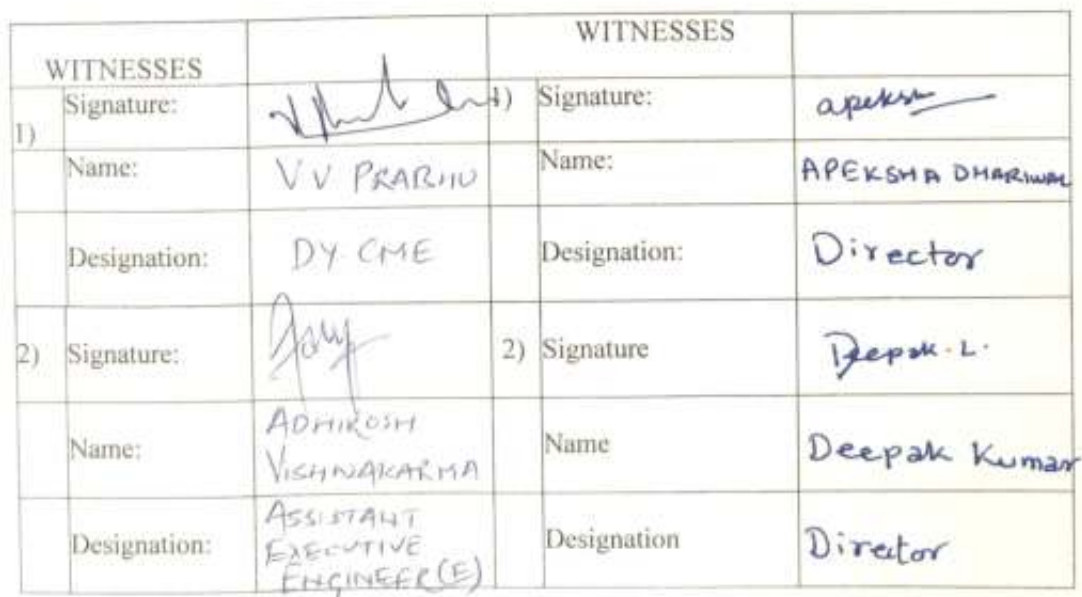 WITNESSES
WITNESSES
1) Signature: 1) Signature: apeksha
Name: V V PRABHU Name: APEKSHA DHARIWAL
Designation: DY CME Designation: Director
2) Signature: 2) Signature Deepak. L.
Name: ADHIROSH
VISHWAKARMA Name Deepak Kumar
Designation: ASSISTANT
EXECUTIVE
ENGINEER (E) Designation Director